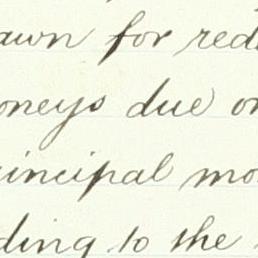 awn for red
oneys due on
incipal mo
ding to the